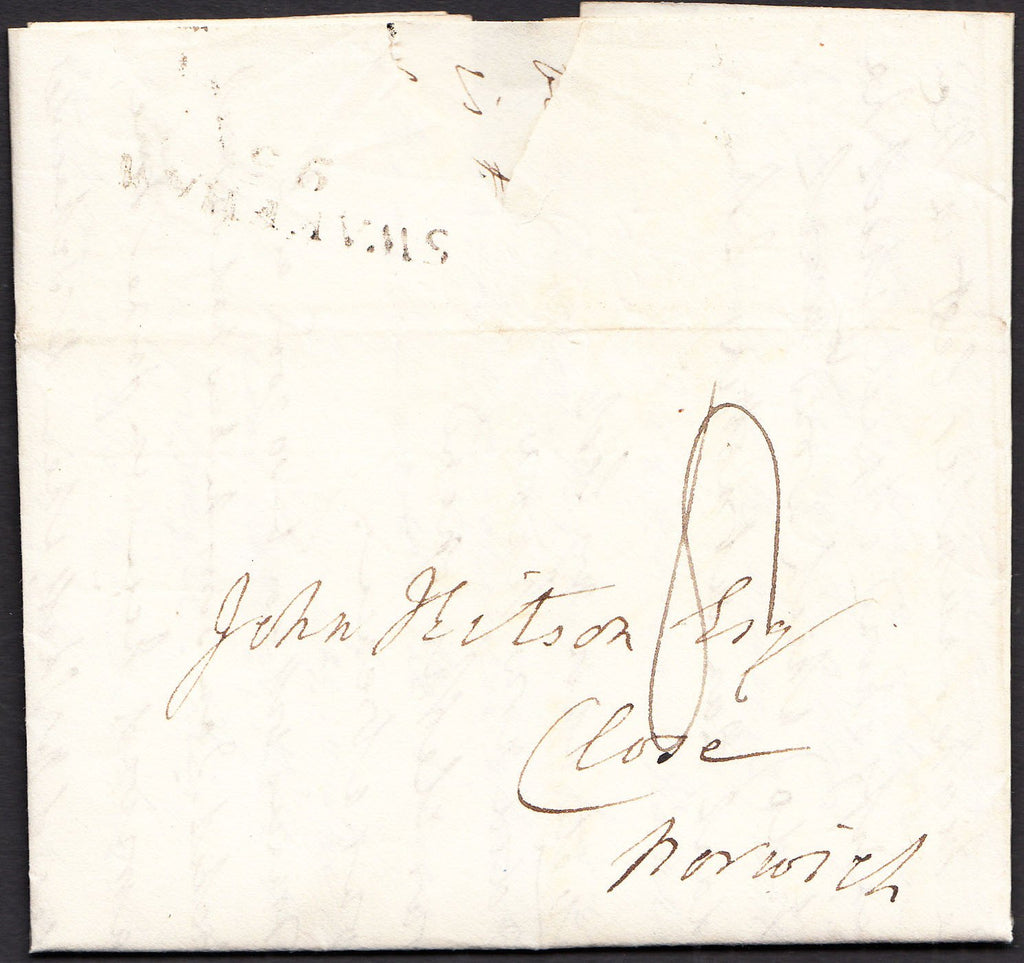 John Kitson Esq
Close
Norwich